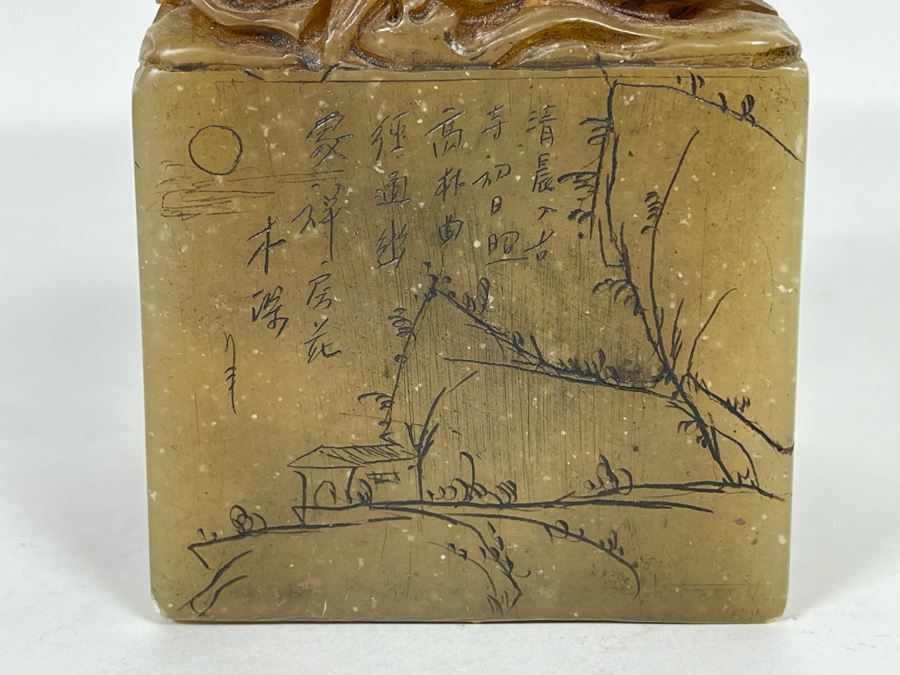 清晨入古
寺初日照
高林曲
徑通幽
處禅房花
木深